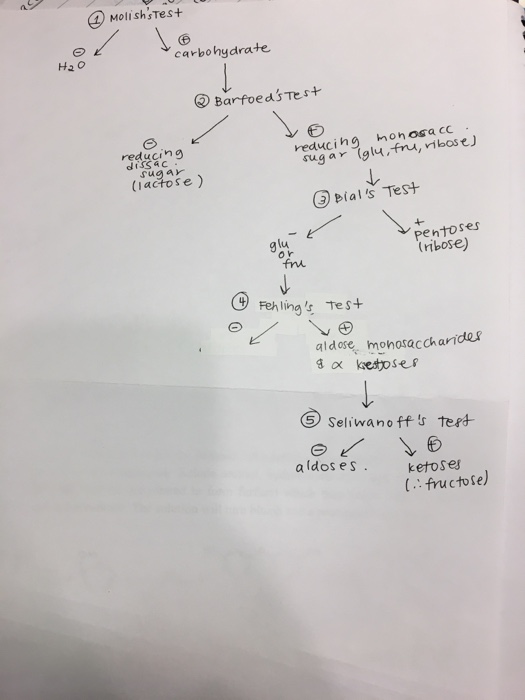 ① Molish'sTest
⊖
H2O
⊕
carbohydrate
② Barfoed'sTest
⊖
reducing
dissac.
sugar
(lactose)
⊕
reducing monosacc.
sugar (glu, fru, ribose)
③ Bial's Test
−
glu
or
fru
+
pentoses
(ribose)
④ Fehling's Test
⊖
⊕
aldose monosaccharides
& α ketoses
⑤ Seliwanoff's test
⊖
aldoses.
⊕
ketoses
(∴ fructose)